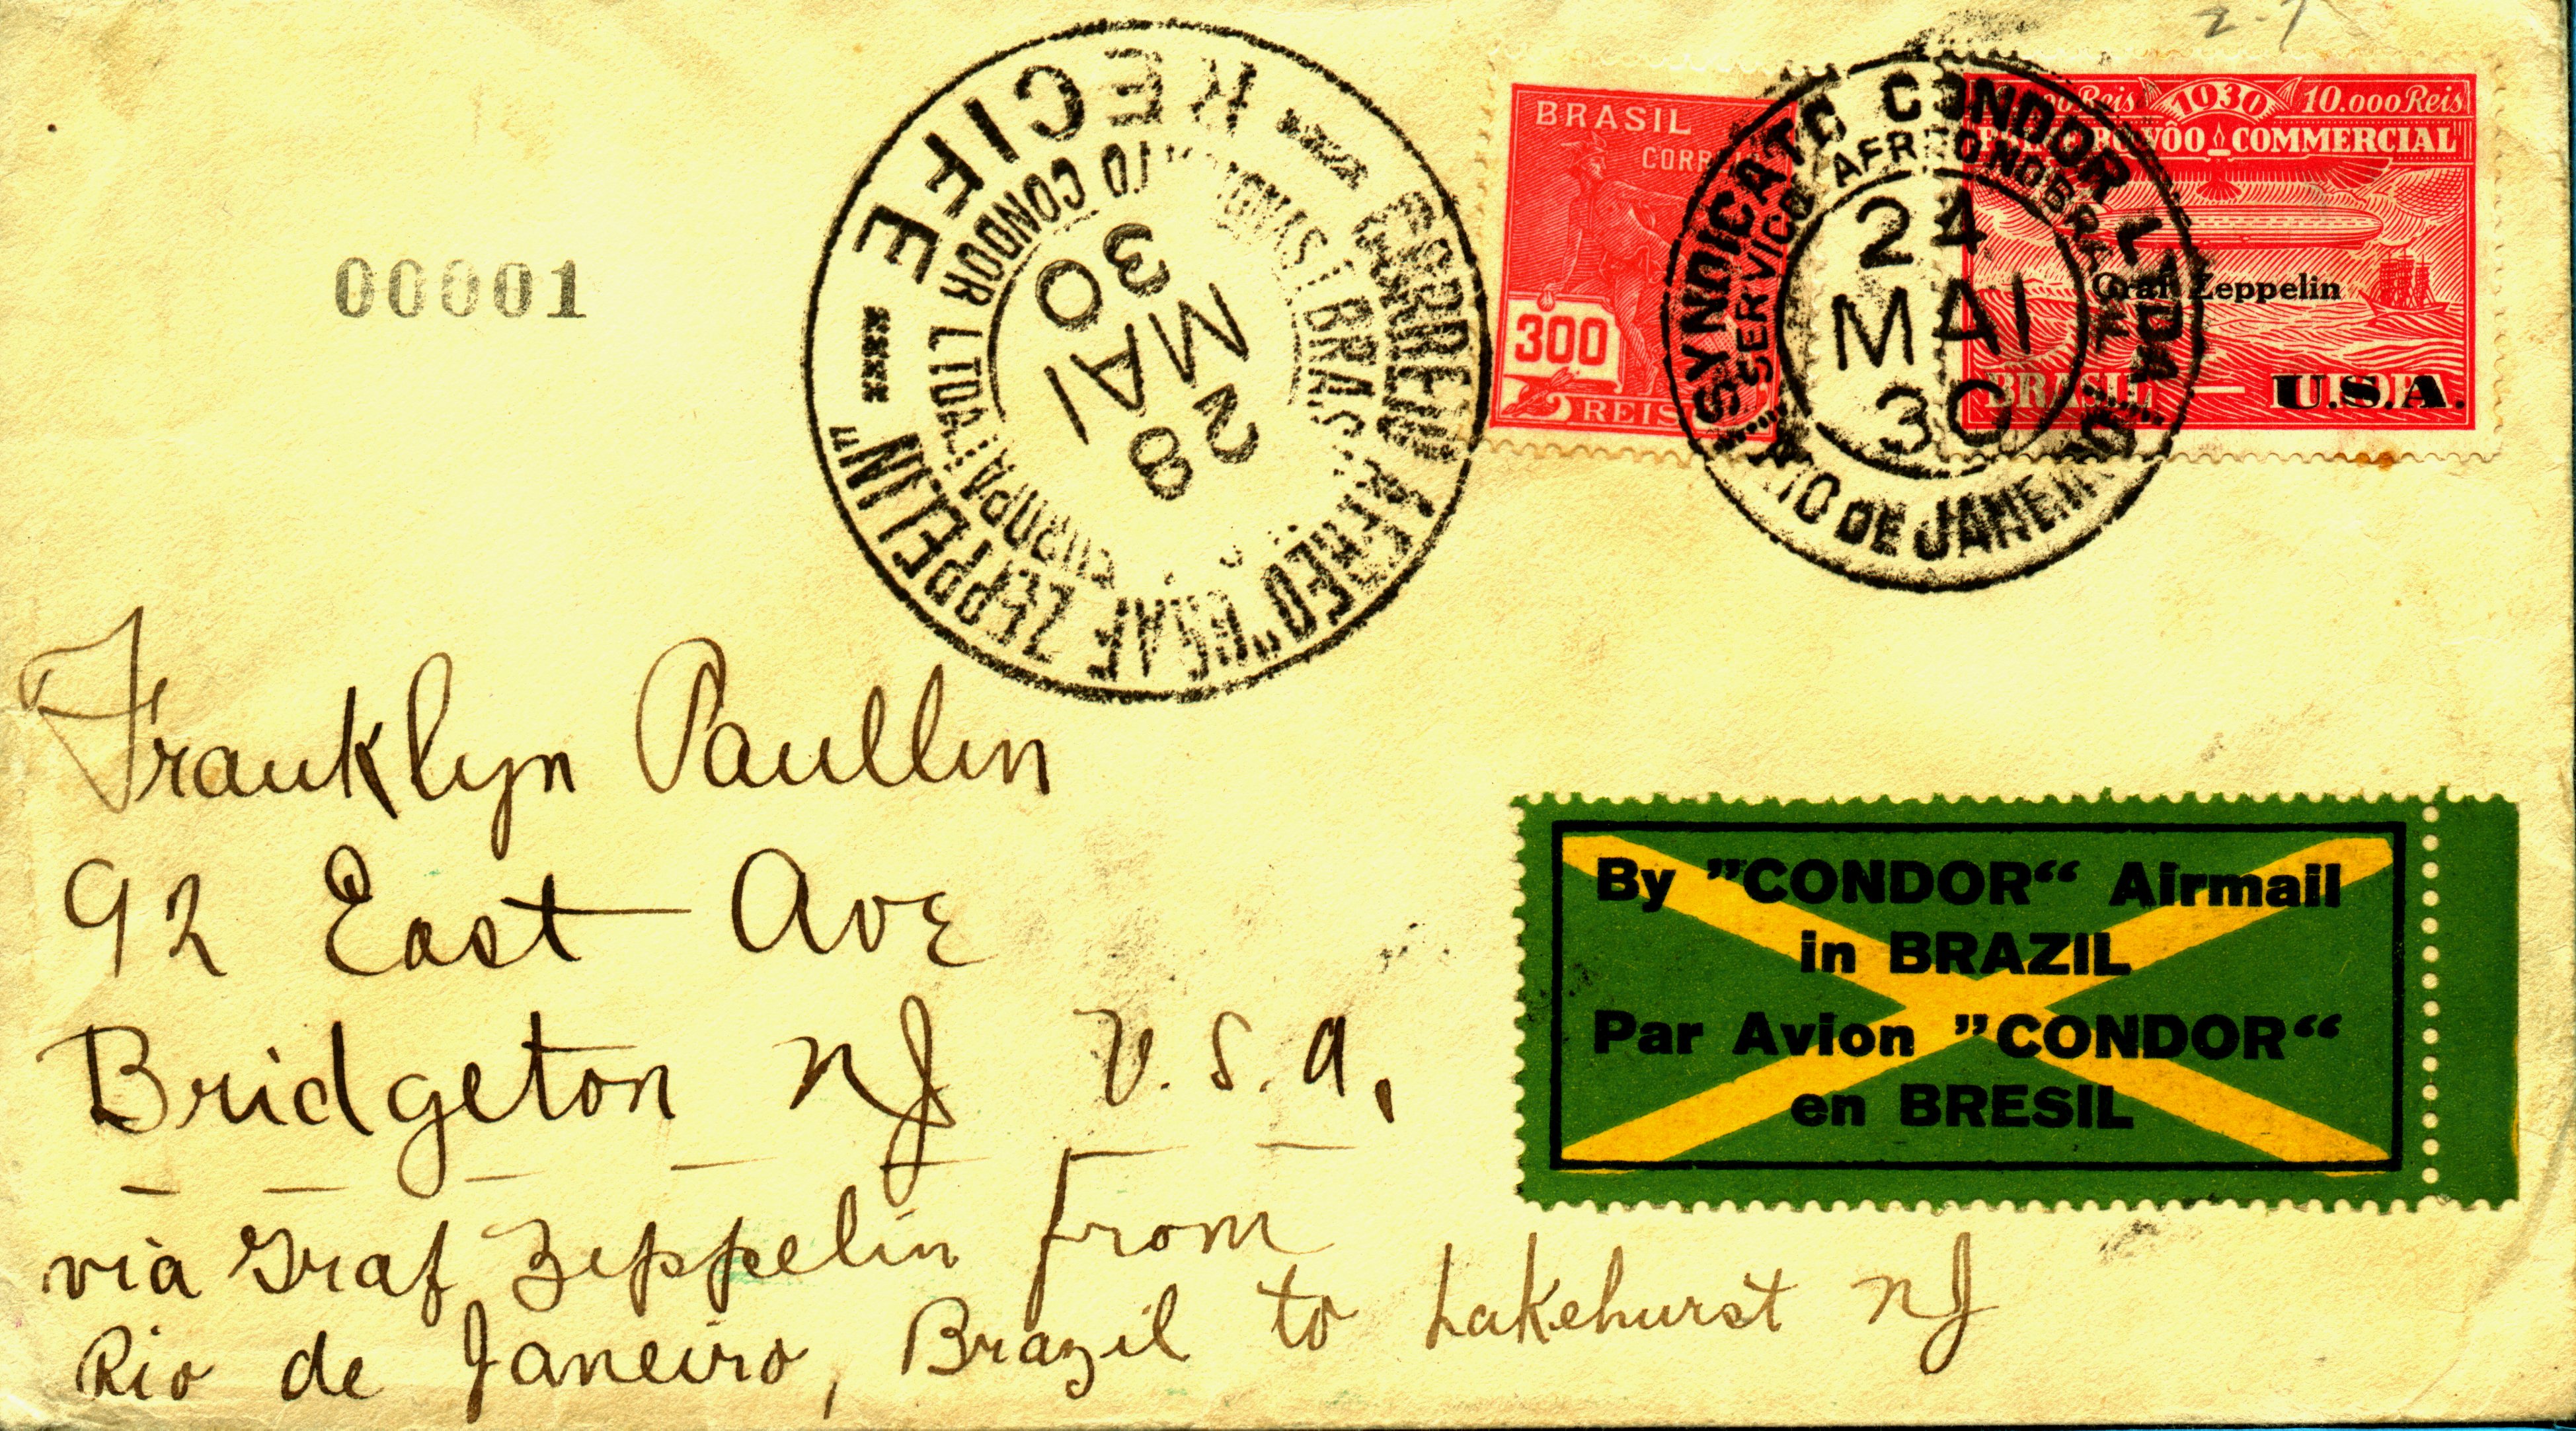 2-7
00001
RECIFE
CORREIO AEREO "GRAF ZEPPELIN"
CONDOR LTDA
EUROPA
BRAS
28
MAI
30
BRASIL
300
REIS
SYNDICATO CONDOR LTDA
SERVIÇO AEREO NO BRASIL
24
MAI
30
RIO DE JANEIRO
1030
10.000 Reis
VÔO COMMERCIAL
Graf Zeppelin
BRASIL — U.S.A.
Franklyn Paullin
92 East Ave
Bridgeton NJ U.S.A.
via Graf Zeppelin from
Rio de Janeiro, Brazil to Lakehurst NJ
By "CONDOR" Airmail
in BRAZIL
Par Avion "CONDOR"
en BRESIL